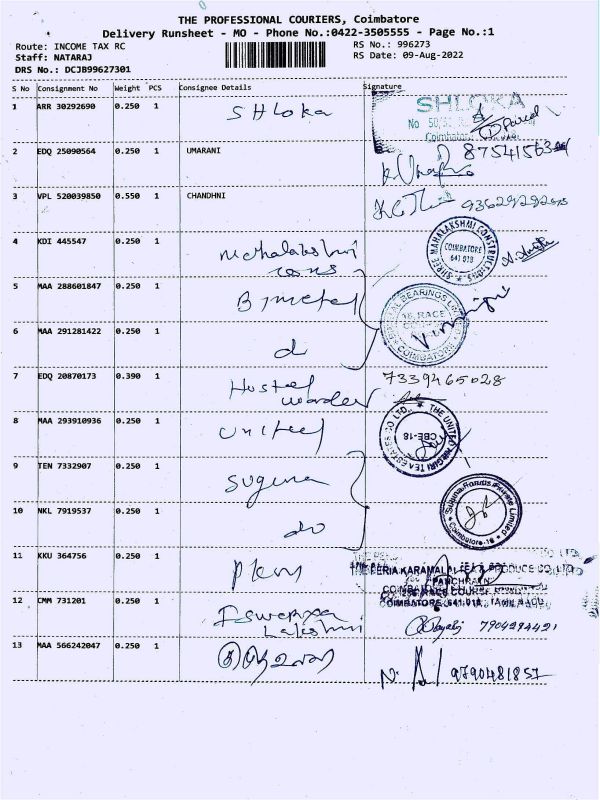 THE PROFESSIONAL COURIERS, Coimbatore
Delivery Runsheet - MO - Phone No.:0422-3505555 - Page No.:1
Route: INCOME TAX RC
RS No.: 996273
Staff: NATARAJ
RS Date: 09-Aug-2022
DRS No.: DCJB99627301
S No Consignment No Weight PCS Consignee Details Signature
1 ARR 30292690 0.250 1 Shloka SHLOKA
No 50/
Coimbatore
2 EDQ 25090564 0.250 1 UMARANI
3 VPL 520039850 0.550 1 CHANDHNI
4 KDI 445547 0.250 1 Mehalakshmi cons SHREE MAHALAKSHMI CONSTRUCTIONS COIMBATORE 641 018
5 MAA 288601847 0.250 1 Bimetal BEARINGS RACE COIMBATORE
6 MAA 291281422 0.250 1 d
7 EDQ 20870173 0.390 1 Hostel warden 7339465028
8 MAA 293910936 0.250 1 United THE UNITED NILGIRI TEA ESTATES CO LTD., CBE-18
9 TEN 7332907 0.250 1 Suguna Suguna Foods Private Limited Coimbatore-18
10 NKL 7919537 0.250 1 do
11 KKU 364756 0.250 1 THE PERIA KARAMALAI TEA & PRODUCE CO. LTD
PANCHRATN
RACE COURSE
COIMBATORE 641 018
12 CMM 731201 0.250 1 Eswarya Lakshmi 7904294421
13 MAA 566242047 0.250 1 9790481857